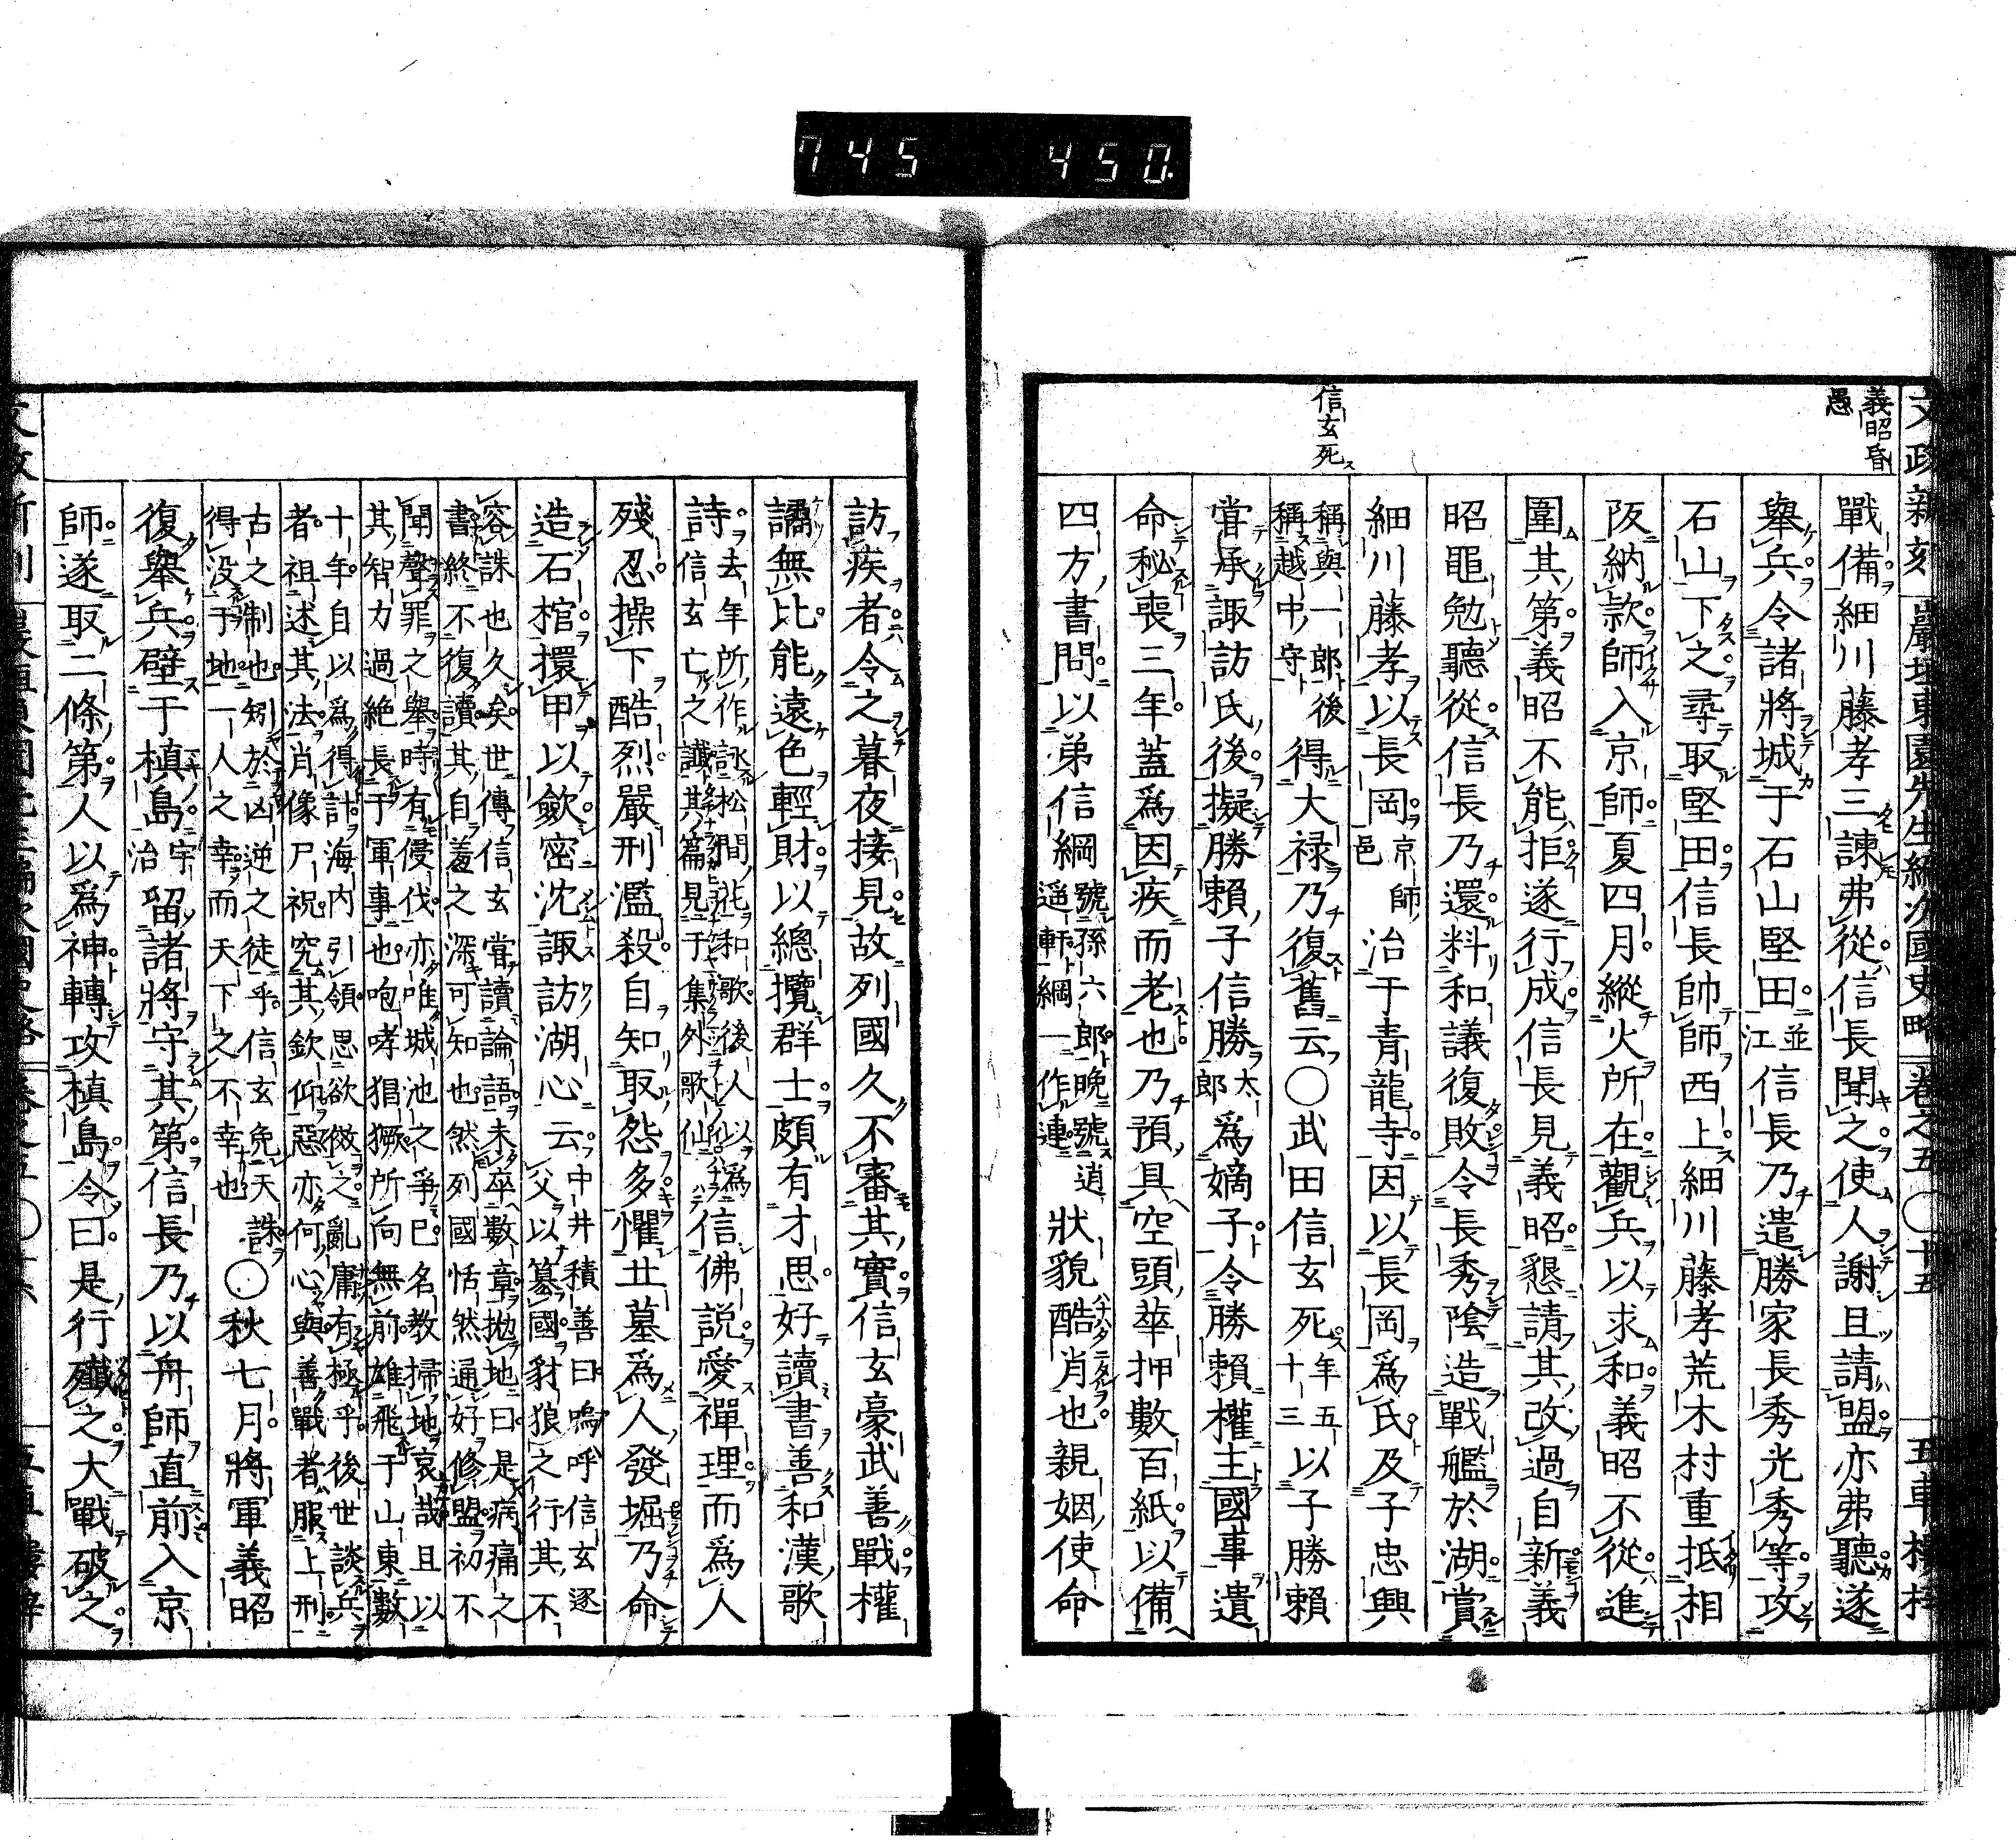 745 450.
文政新刻 巖垣東園先生編次國史略 卷之五 〇十五
義昭昏
愚
戰備細川藤孝三諫弗從信長聞之使人謝且請盟亦弗聽遂
舉兵令諸將城于石山堅田並江信長乃遣勝家長秀光秀等攻
石山下之尋取堅田信長帥師西上細川藤孝荒木村重抵相
阪納款師入京師夏四月縱火所在觀兵以求和義昭不從進
圍其第義昭不能拒遂行成信長見義昭懇請其改過自新義
昭黽勉聽從信長乃還料和議復敗令長秀陰造戰艦於湖賞
細川藤孝以長岡京師邑治于青龍寺因以長岡爲氏及子忠興
稱與一郎後
稱越中守
得大禄乃復舊云〇武田信玄死年五十三以子勝賴
信玄死
嘗承諏訪氏後擬勝賴子信勝太郎爲嫡子令勝賴權主國事遺
命秘喪三年蓋爲因疾而老也乃預具空頭華押數百紙以備
四方書問以弟信綱
號孫六郎晩號逍
遥軒綱一作連
狀貌酷肖也親姻使命
訪疾者令之暮夜接見故列國久不審其實信玄豪武善戰權
譎無比能遠色輕財以總攬群士頗有才思好讀書善和漢歌
詩
去年所作詠松間花和歌後人以爲
信玄亡之讖其篇見于集外歌仙
信佛説愛禪理而爲人
殘忍操下酷烈嚴刑濫殺自知取怨多懼其墓爲人發堀乃命
造石棺擐甲以斂密沈諏訪湖心云
中井積善曰嗚呼信玄逐
父以簒國豺狼之行其不
容誅也久矣世傳信玄嘗讀論語未卒數章抛地曰是病痛之
書終不復讀其自羞之深可知也然列國恬然通好修盟初不
聞聲罪之舉時有侵伐亦唯城池之爭已名教掃地哀哉且以
其智力過絶長于軍事也咆哮猖獗所向無前雄飛于山東數
十年自以爲得計海内引領思欲倣之亂庸有極乎後世談兵
者祖述其法肖像尸祝究其欽仰惡亦何心與善戰者服上刑
古之制也矧於凶逆之徒乎信玄免天誅
得没于地一人之幸而天下之不幸也
〇秋七月將軍義昭
復舉兵壁于槙島宇治留諸將守其第信長乃以舟師直前入京
師遂取二條第人以爲神轉攻槙島令曰是行殲之大戰破之